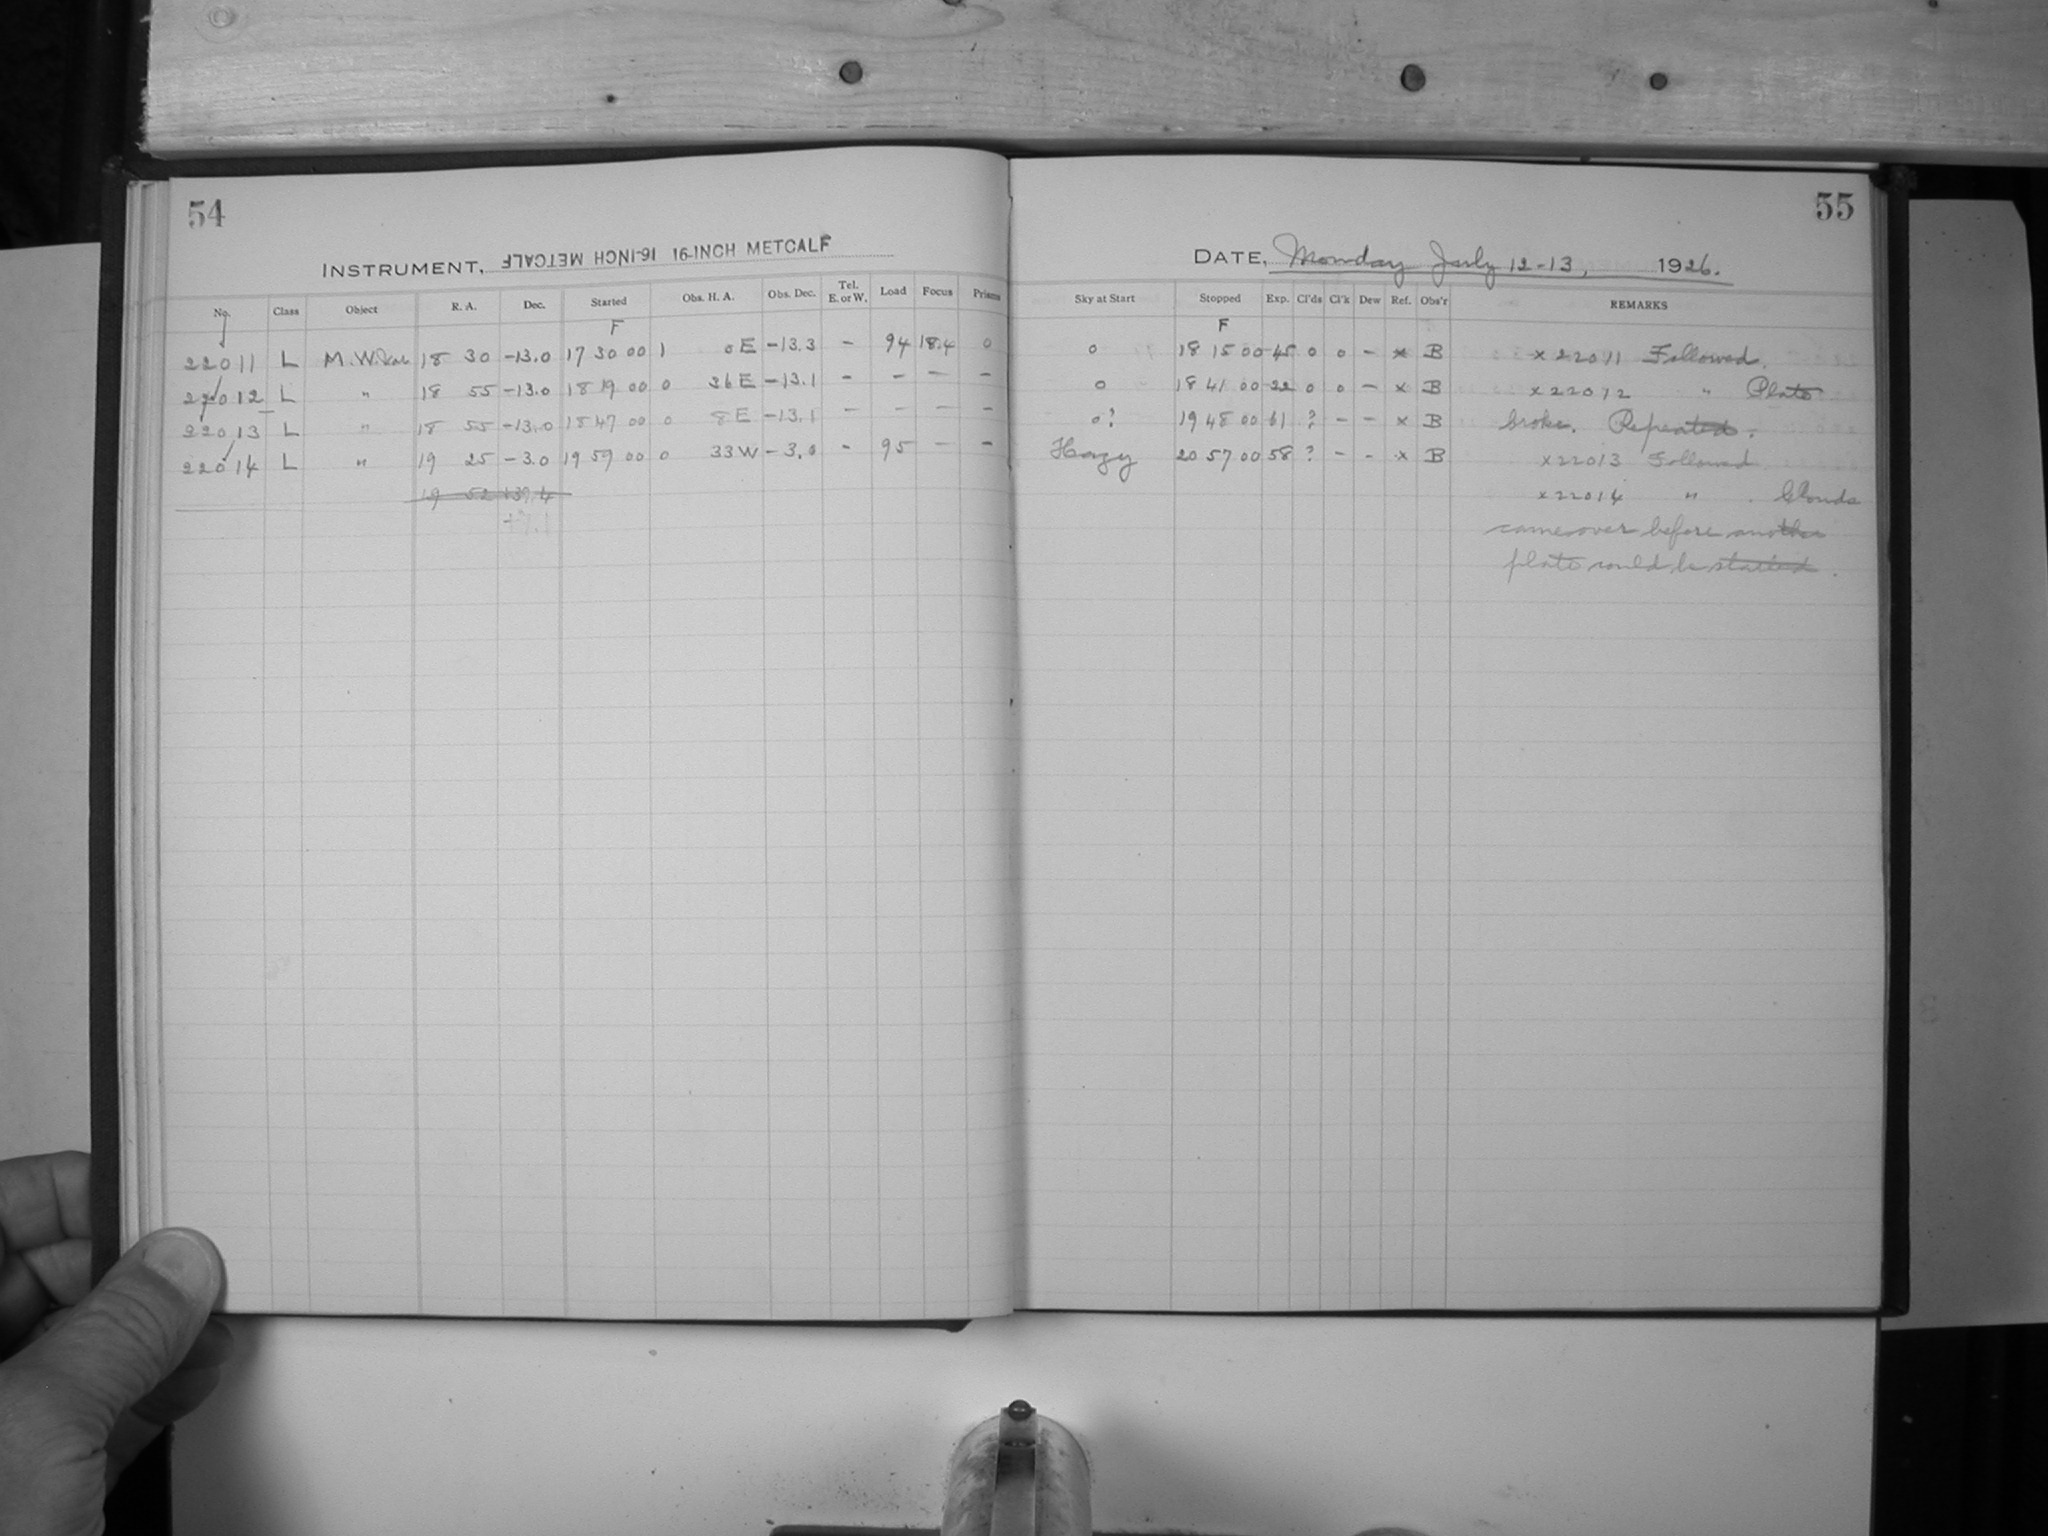 54
INSTRUMENT, 16-INCH METCALF 16-INCH METCALF
No. Class Object R. A. Dec. Started Obs. H. A. Obs. Dec. Tel. E. or W. Load Focus Prisms
F
22011 L M.W. 18 30 -13.0 17 30 00 1 0 E -13.3 - 94 18.4 0
22012 L " 18 55 -13.0 18 19 00 0 36 E -13.1 - - - -
22013 L " 18 55 -13.0 18 47 00 0 8 E -13.1 - - - -
22014 L " 19 25 -3.0 19 59 00 0 33 W -3.0 - 95 - -
19 52 +39.4
+7.1
55
DATE, Monday July 12-13, 1926.
Sky at Start Stopped Exp. Cl'ds Cl'k Dew Ref. Obs'r REMARKS
F
0 18 15 00 45 0 0 - x B x22011 Followed.
0 18 41 00 22 0 0 - x B x22012 " Plate
0? 19 48 00 61 ? - - x B broke. Repeated.
Hazy 20 57 00 58 ? - - x B x22013 Followed
x22014 " Clouds
came over before another
plate could be started.